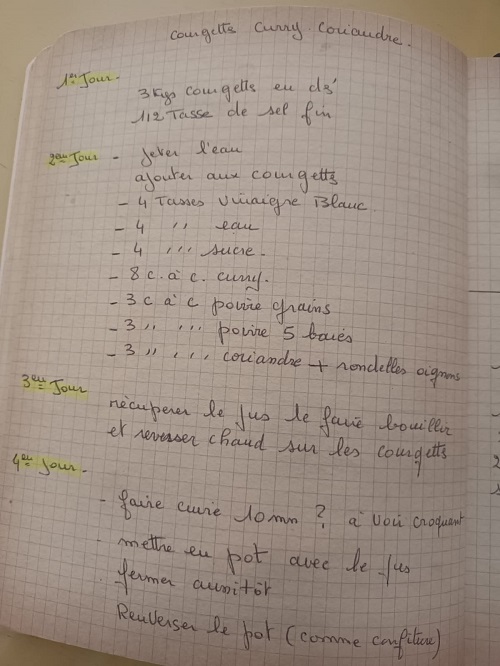 courgetts curry-coriandre.
1er Jour.
3kgs courgetts en dés
1/2 Tasse de sel fin
2eme Jour - jeter l'eau
ajouter aux courgetts
- 4 Tasses vinaigre Blanc
- 4 ,, eau
- 4 ,,, sucre.
- 8 c. à c. curry.
- 3 c à c poivre grains
- 3 ,, ,,, poivre 5 baies
- 3 ,, ,,, coriandre + rondelles oignons
3eme Jour récupérer le jus le faire bouillir
et reverser chaud sur les courgetts
4eme Jour.
- faire cuire 10mn ? à voir croquant
- mettre en pot avec le jus
- fermer aussitôt
Renverser le pot (comme confiture)
2